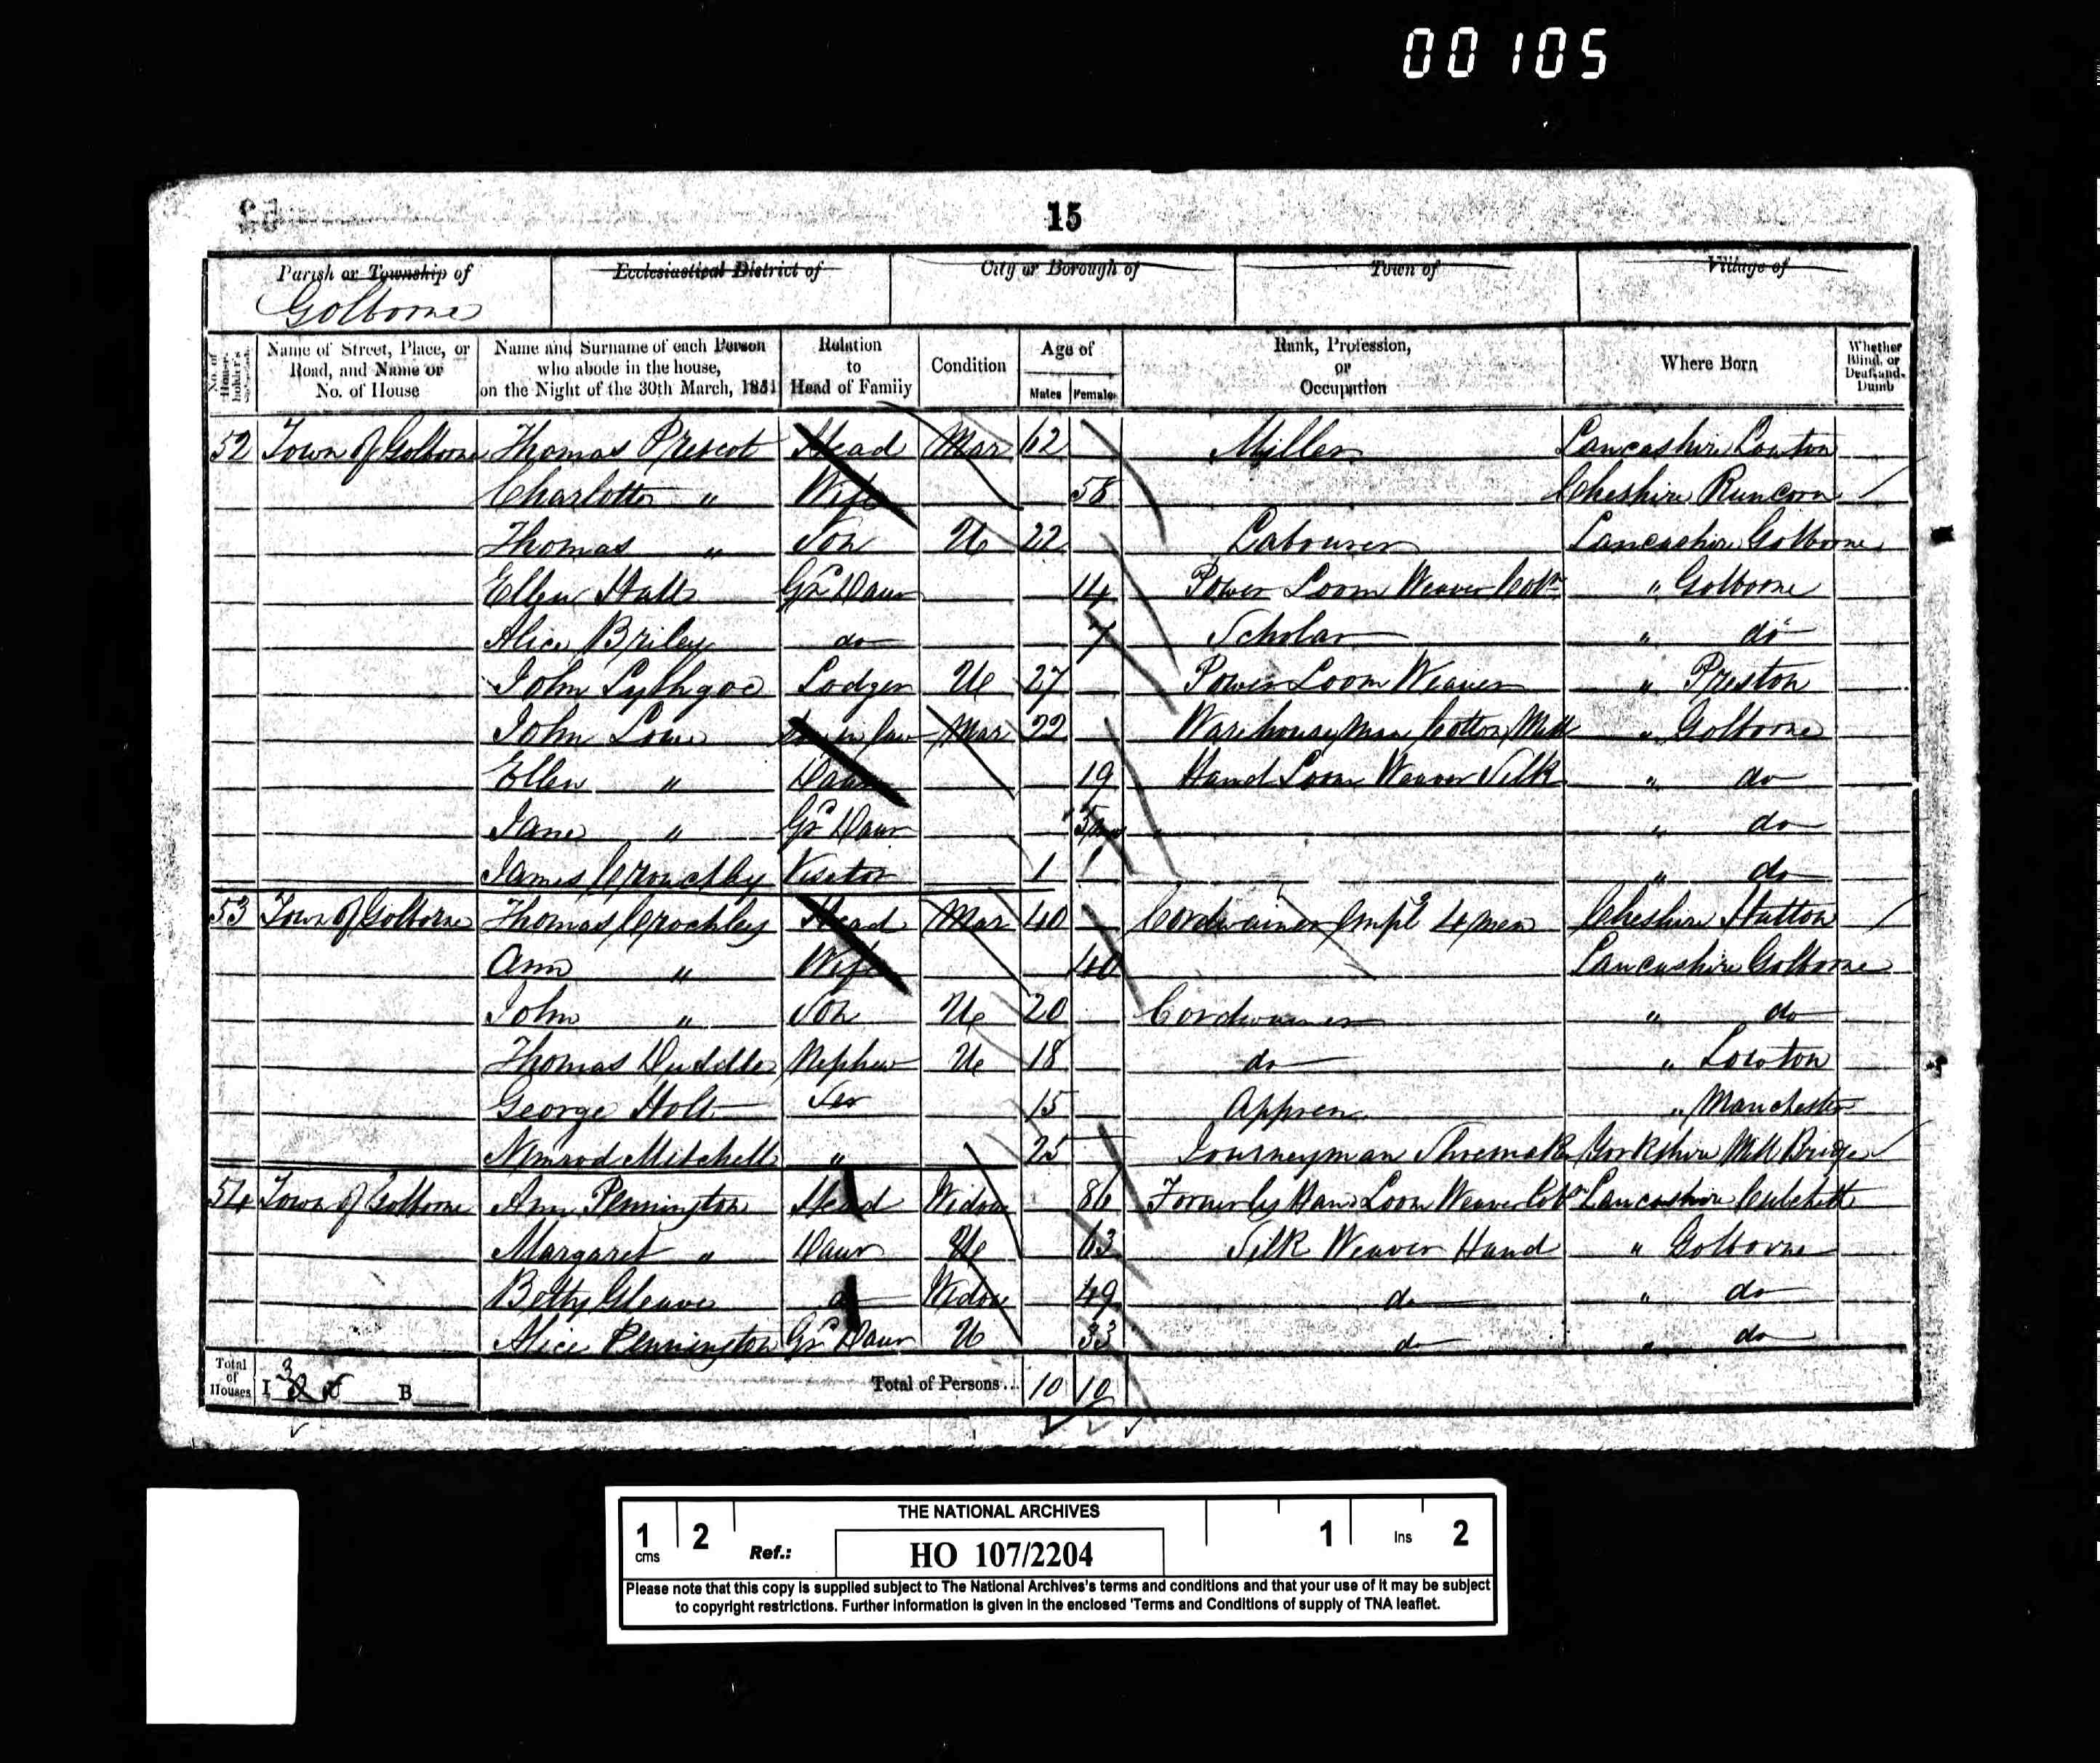 00105
15
Parish or Township of Ecclesiastical District of City or Borough of Town of Village of
Golborne
No. of House-holder's Schedule Name of Street, Place, or Road, and Name or No. of House Name and Surname of each Person who abode in the house, on the Night of the 30th March, 1851 Relation to Head of Family Condition Age of Males Females Rank, Profession, or Occupation Where Born Whether Blind, or Deaf-and-Dumb
52 Town of Golborne Thomas Prescot Head Mar 62 Miller Lancashire Lowton
Charlotte " Wife 58 Cheshire Runcorn
Thomas " Son U 22 Labourer Lancashire Golborne
Ellen Hall Gd Daur 14 Power Loom Weaver Cotn " Golborne
Alice Briley do 7 Scholar " do
John Lythgoe Lodger U 27 Power Loom Weaver " Preston
John Lowe Son in law Mar 22 Warehouseman Cotton Mill " Golborne
Ellen " Daur 19 Hand Loom Weaver Silk " do
Jane " Gd Daur 5 " do
James Crouchley Visitor 1 " do
53 Town of Golborne Thomas Crochley Head Mar 40 Cordwainer Empg 4 men Cheshire Hatton
Ann " Wife 40 Lancashire Golborne
John " Son U 20 Cordwainer " do
Thomas Duddle Nephew U 18 do " Lowton
George Holt Ser 15 Appren " Manchester
Nimrod Mitchell " 25 Journeyman Shoemaker Yorkshire Mill Bridge
54 Town of Golborne Ann Pennington Head Widow 86 Formerly Hand Loom Weaver Cotn Lancashire Culcheth
Margaret " Daur U 63 Silk Weaver Hand " Golborne
Betty Gleave do Widow 49 do " do
Alice Pennington Gd Daur U 33 do " do
Total of Houses I 3 B Total of Persons... 10 10
THE NATIONAL ARCHIVES
1 cms 2 Ref.: HO 107/2204 1 Ins 2
Please note that this copy is supplied subject to The National Archives's terms and conditions and that your use of it may be subject
to copyright restrictions. Further information is given in the enclosed 'Terms and Conditions of supply of TNA leaflet.